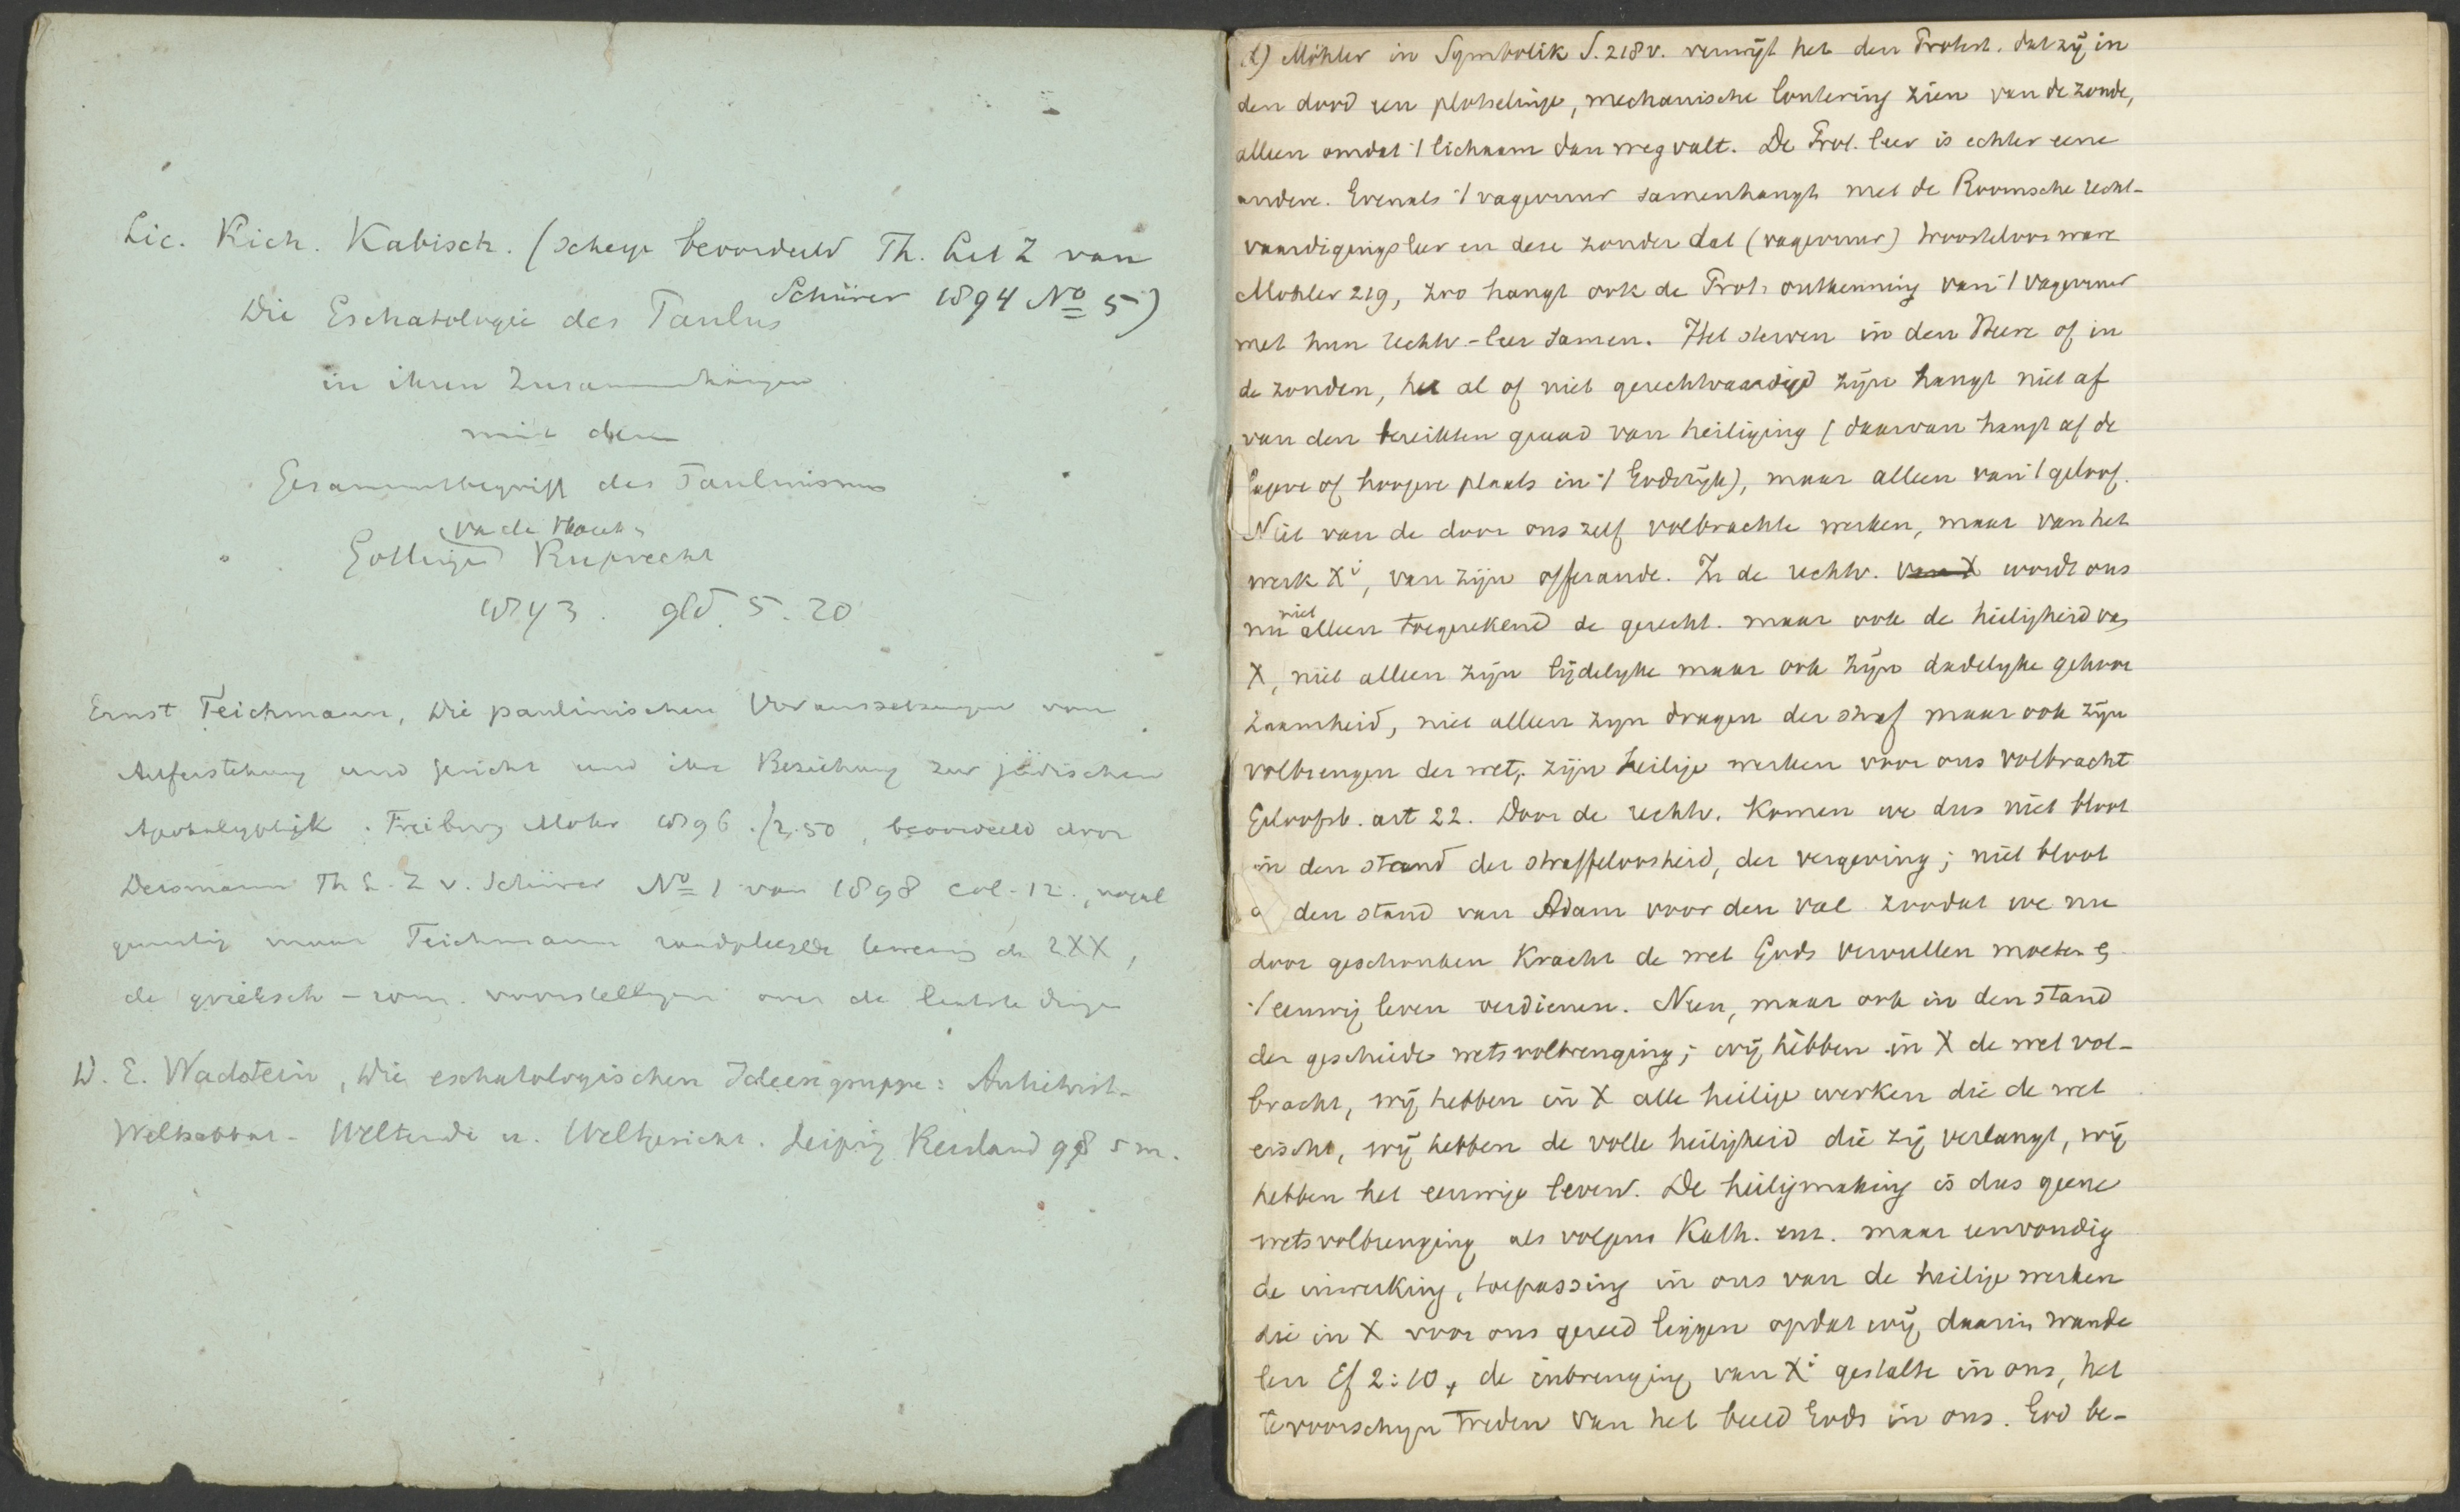 Lic. Rich. Kabisch. (scherp beoordeeld Th. Lit Z van
Schürer 1894 No 5)
Die Eschatologie des Paulus
in ihren Zusammenhängen
mit dem
Gesammtbegriff des Paulinismus
Vandenhoeck
Gottingen Ruprecht
1893. gld. 5.20
Ernst Teichmann, Die paulinischen Voraussetzungen von
Auferstehung und Gericht und ihre Beziehung zur jüdischen
Apokalyptik. Freiburg Mohr 1896. 2.50, beoordeeld door
Deismann Th L. Z v. Schürer No 1 van 1898 col. 12., nogal
gunstig maar Teichmann raadpleegde weinig de LXX,
de grieksch-rom. voorstellingen over de laatste dingen
D. E. Wadstein, Die eschatologischen Ideengruppe: Antichrist-
Weltsabbat- Weltende u. Weltgericht. Leipzig Reisland 98 5 m.
1) Möhler in Symbolik S. 218 v. verwijt het den Protest. dat zij in
den dood een plotselinge, mechanische loutering zien van de zonde,
alleen omdat ·/ lichaam dan wegvalt. De Prot. leer is echter eene
andere. Evenals ·/ vagevuur samenhangt met de Roomsche recht-
vaardigingsleer en deze zonder dat (vagevuur) troosteloos ware
Mohler 219, zoo hangt ook de Prot. ontkenning van ·/ vagevuur
met hun rechtv-leer samen. Het sterven in den Heere of in
de zonden, het al of niet gerechtvaardigd zijn hangt niet af
van den bereikten graad van heiliging (daarvan hangt af de
lagere of hoogere plaats in ·/ Godsrijk), maar alleen van ·/ geloof.
Niet van de door ons zelf volbrachte werken, maar van het
werk Xi, van zijn offerande. In de rechtv. van X wordt ons
nu niet alleen toegerekend de gerecht. maar ook de heiligheid van
X, niet alleen zijn lijdelijke maar ook zijn dadelijke gehoor
zaamheid, niet alleen zijn dragen der straf maar ook zijn
volbrengen der wet, zijn heilige werken voor ons volbracht
Geloofsb. art 22. Door de rechtv. komen we dus niet bloot
in den stand der straffeloosheid, der vergeving; niet bloot
in den stand van Adam voor den val zoodat we nu
door geschonken kracht de wet Gods vervullen moeten &
·/ eeuwig leven verdienen. Neen, maar ook in den stand
der geschiede wetsvolbrenging; wij hebben in X de wet vol-
bracht, wij hebben in X alle heilige werken die de wet
eischt, wij hebben de volle heiligheid die zij verlangt, wij
hebben het eeuwige leven. De heiligmaking is dus geene
wetsvolbrenging als volgens Kath. enz. maar eenvoudig
de inwerking, toepassing in ons van de heilige werken
die in X voor ons gereed liggen opdat wij daarin wande
len Ef 2:10, de inbrenging van Xi gestalte in ons, het
tevoorschijn treden van het beeld Gods in ons. God be-